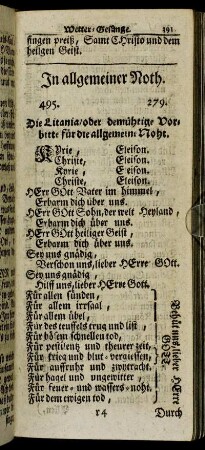 Wetter-Gesänge. 191
singen preiß, Samt Christo und dem
heilgen Geist.
In allgemeiner Noth.
495. 279.
Die Litania/oder demühtige Vor-
bitte für die allgemeine Noht.
Kyrie, Eleison.
Christe, Eleison.
Kyrie, Eleison.
Christe, Eleison.
HErr GOtt Vater im himmel,
Erbarm dich über uns.
HErr GOtt Sohn, der welt Heyland,
Erbarm dich über uns.
HErr GOtt heiliger Geist,
Erbarm dich über uns.
Sey uns gnädig,
Verschon uns, lieber HErre GOtt.
Sey uns gnädig,
Hilff uns, lieber HErre Gott.
Für allen sünden,
Für allem irrsaal,
Für allem übel,
Für des teuffels trug und list,
Für bösem schnellen tod,
Für pestilentz und theurer zeit,
Für krieg und blut-vergiessen,
Für auffruhr und zwytracht.
Für hagel und ungewitter,
Für feuer- und wassers-noht.
Für dem ewigen tod,
Behüt uns, lieber HErre
GOtt.
r4 Durch